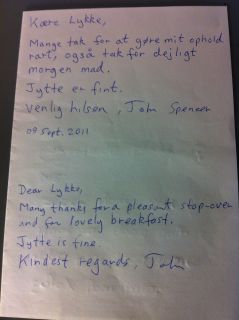 Kære Lykke,
Mange tak for at gøre mit ophold
rart, også tak for dejligt
morgen mad.
Jytte er fint.
Venlig hilsen, John Spencer
09 Sept. 2011
Dear Lykke,
Many thanks for a pleasant stop-over
and for lovely breakfast.
Jytte is fine.
Kindest regards, John